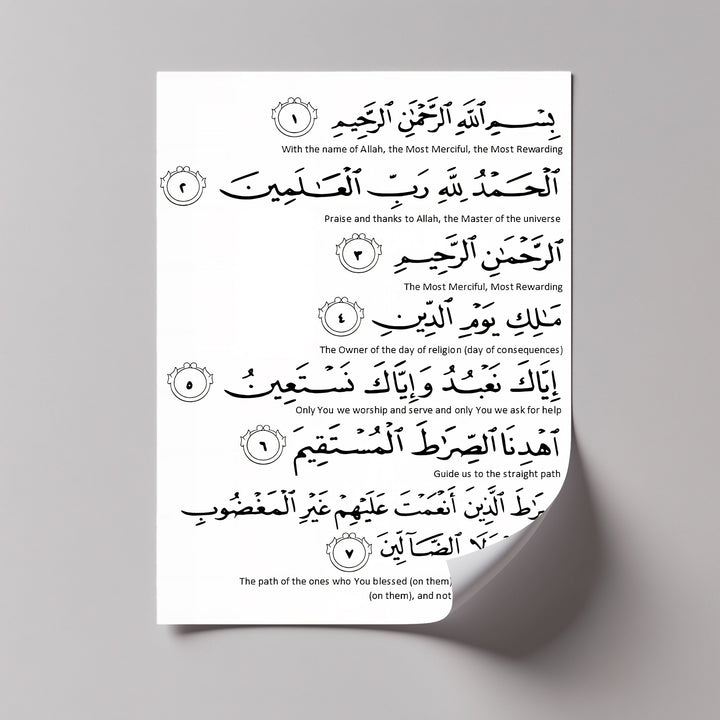 بِسْمِ ٱللَّهِ ٱلرَّحْمَٰنِ ٱلرَّحِيمِ ١
With the name of Allah, the Most Merciful, the Most Rewarding
ٱلْحَمْدُ لِلَّهِ رَبِّ ٱلْعَٰلَمِينَ ٢
Praise and thanks to Allah, the Master of the universe
ٱلرَّحْمَٰنِ ٱلرَّحِيمِ ٣
The Most Merciful, Most Rewarding
مَٰلِكِ يَوْمِ ٱلدِّينِ ٤
The Owner of the day of religion (day of consequences)
إِيَّاكَ نَعْبُدُ وَإِيَّاكَ نَسْتَعِينُ ٥
Only You we worship and serve and only You we ask for help
ٱهْدِنَا ٱلصِّرَٰطَ ٱلْمُسْتَقِيمَ ٦
Guide us to the straight path
ٱلَّذِينَ أَنْعَمْتَ عَلَيْهِمْ غَيْرِ ٱلْمَغْضُوبِ
وَلَا ٱلضَّآلِّينَ ٧
The path of the ones who You blessed (on them)
(on them), and not